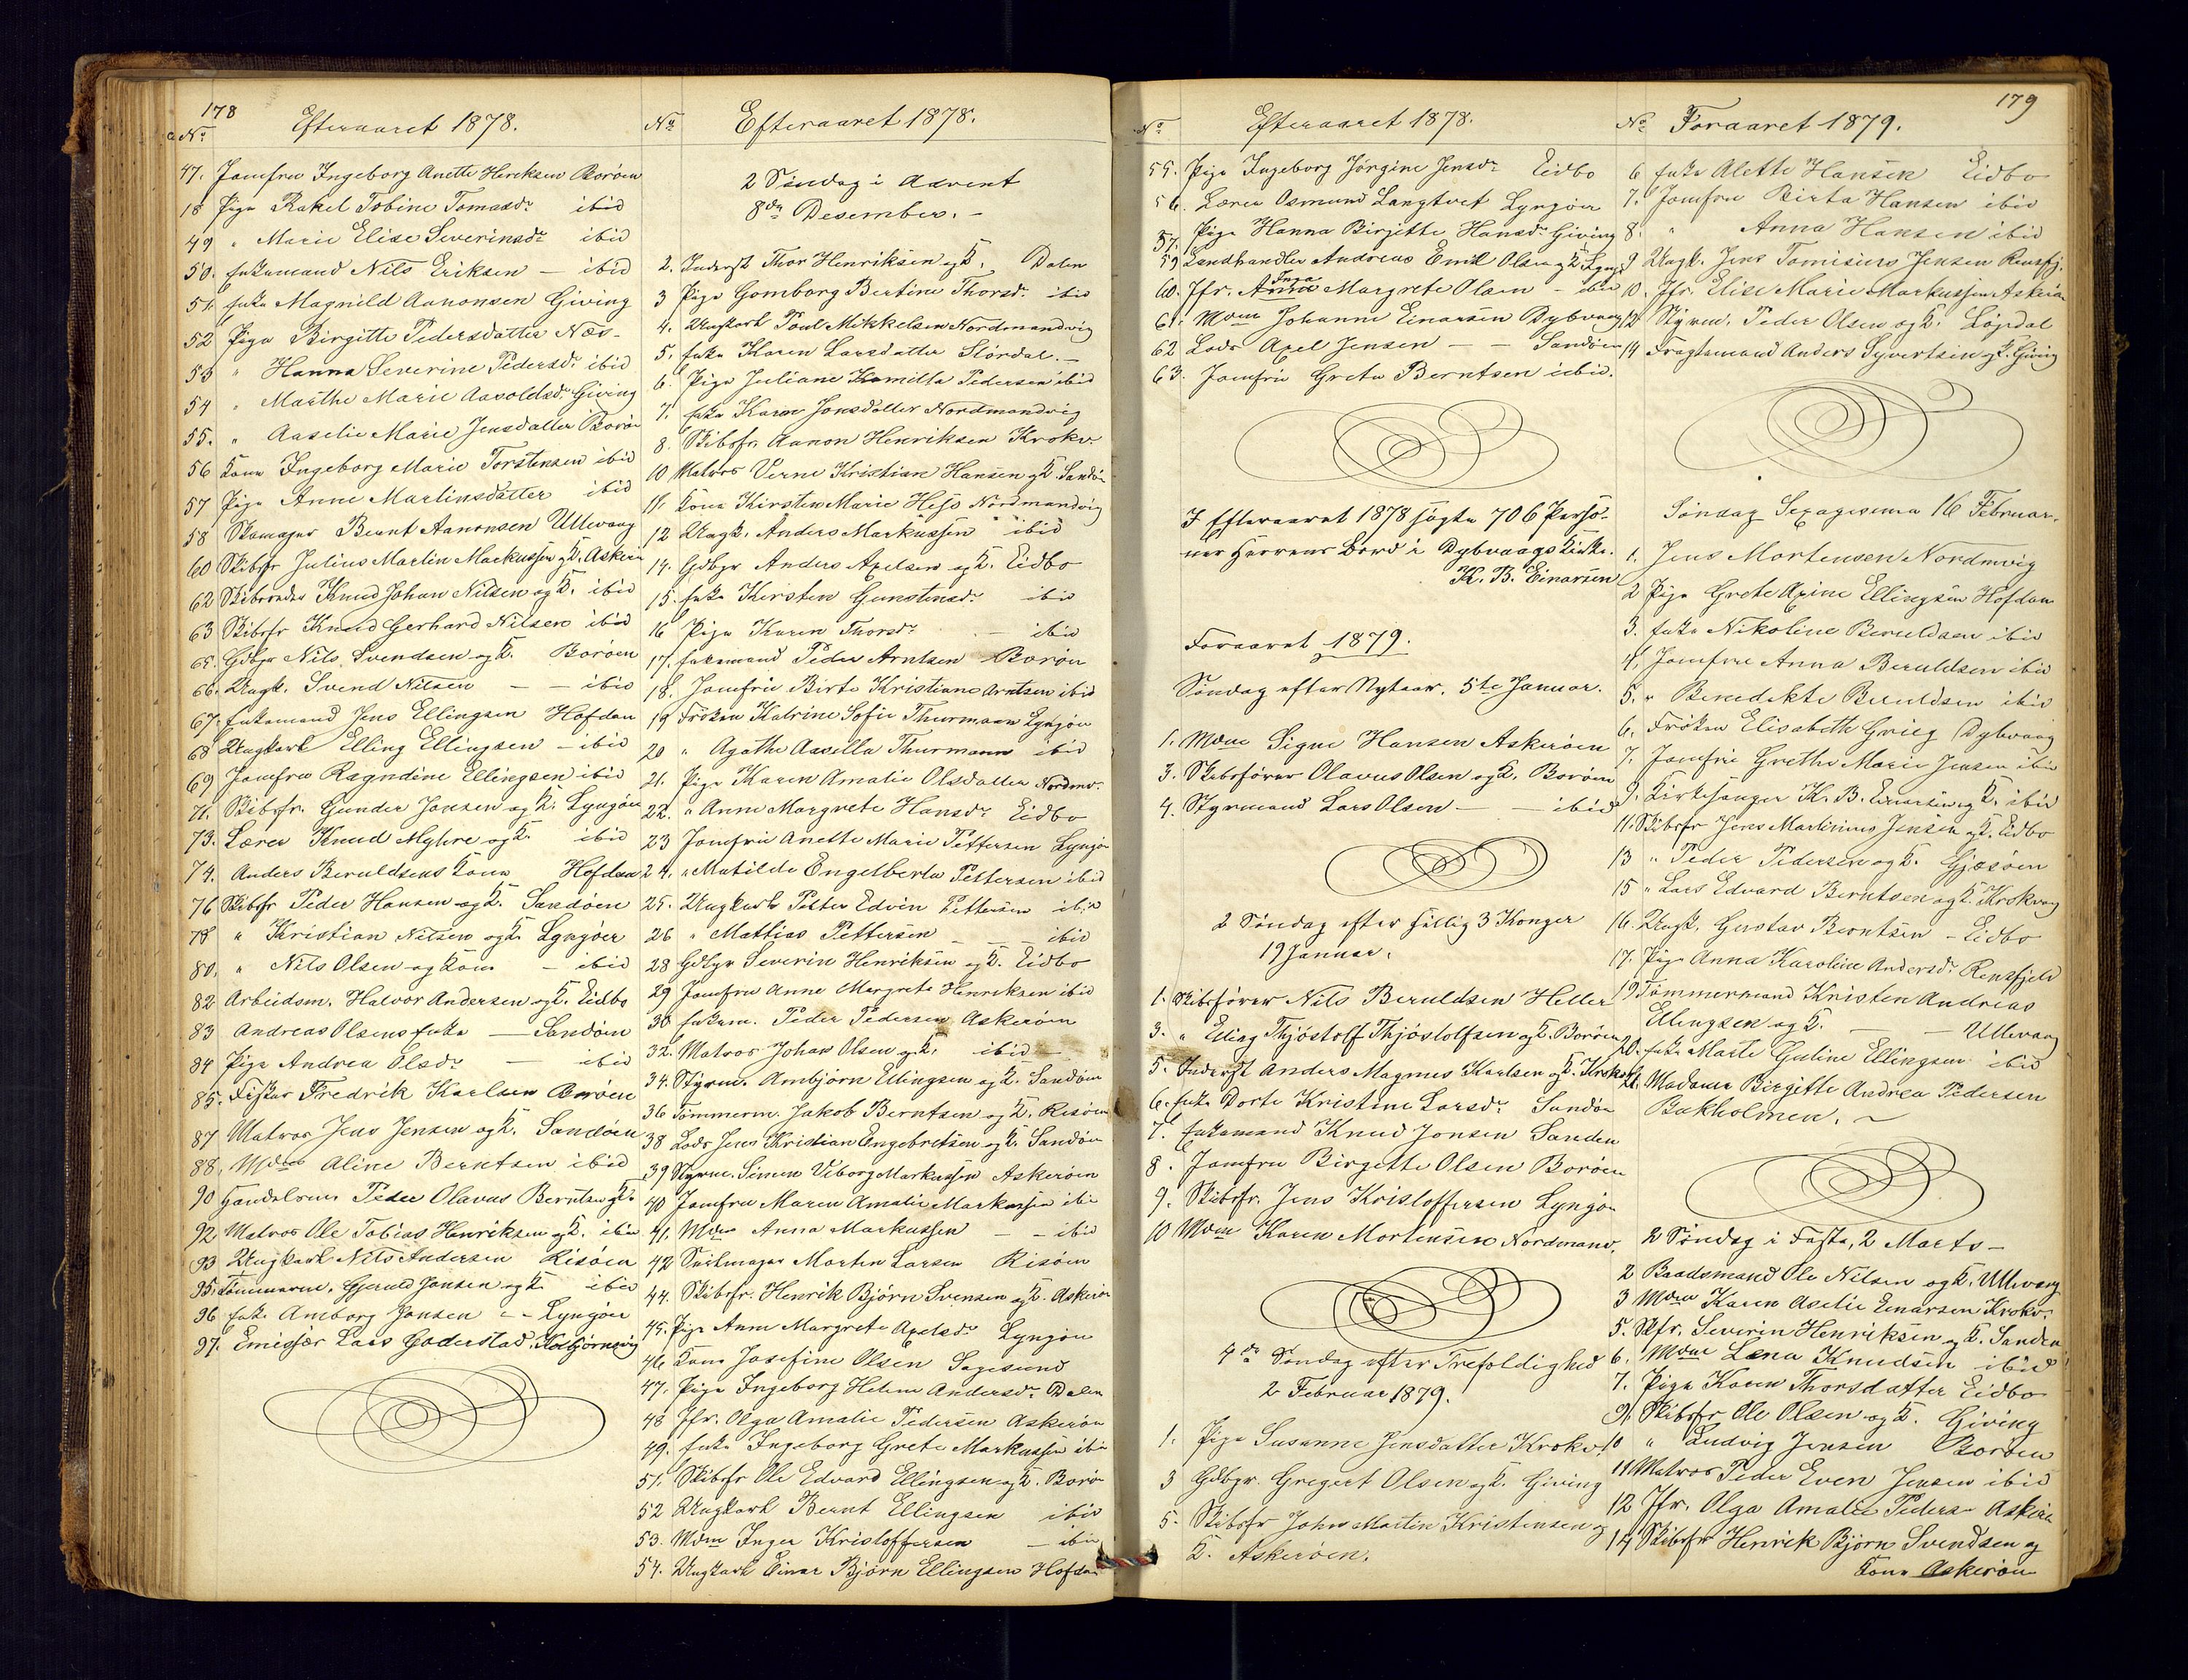 178
No
Efteraaret 1878.
47. Jomfru Ingeborg Anette Henriksen Borøen
18 Pige Rakel Tobine Tomasdr ibid
49 " Marie Elise Severinsdr ibid
50. Enkemand Nils Eriksen — ibid
51. Enke Magnild Aanonsen Giving
52 Pige Birgitte Pedersdatter Næs-
53 " Hanna Severine Pedersdr ibid
54 " Marthe Marie Aasoldsdr Giving
55. " Aaselie Marie Jensdatter Borøn
56 Kone Ingeborg Marie Torstensen ibid
57 Pige Anne Martinsdatter ibid
58 Skomager Bernt Aanonsen Ullevaag
60 Skibsfr Julius Martin Markussen og K. Askerøn
62 Skibsreder Knud Johan Nilsen og K. ibid
63 Skibsfr Knud Gerhard Nilsen ibid
65. Gdbgr Nils Svendsen og K. Borøen
66. Ungk. Svend Nilsen — — ibid
67. Enkemand Jens Ellingsen Hofdan
68 Ungkarl Elling Ellingsen — ibid
69 Jomfru Ragndine Ellingsen ibid
71. Skibsfr. Gunder Jensen og K. Lyngøer
73. Lærer Knud Myhre og K. ibid
74. Anders Beruldsens Kone Hofdan
76 Skibsfr Peder Hansen og K. Sandøen
78 " Kristian Nilsen og K. Lyngøer
80. " Nils Olsen og Kone — ibid
82 Arbeidsm. Halvor Andersen og K. Eidbo
83 Andreas Olsens Enke — Sandøen
84 Pige Andrea Olsdr — ibid
85. Fisker Fredrik Karlsen Borøen
87 Matros Jens Jensen og K. Sandøen
88. Mdme Aline Berntsen ibid
90 Handelsm Peder Olavus Berntsen og K.
92 Matros Ole Tobias Henriksen og K. ibid
93 Ungkarl Nils Andersen Risøen
95. Tømmerm. Gjeruld Jansen og K. ibid
96 Enke Anborg Jansen — Lyngøer
97. Emissær Lars Goderstad. Kolbjørnsvig
No
Efteraaret 1878.
2 Søndag i Advent
8de Desember. —
2. Inderst Thor Henriksen og K. Dalen
3 Pige Gomborg Bertine Thorsdr. ibid
4. Ungkarl Poul Mikkelsen Nordmandvig
5. Enke Karen Larsdatter Stórdal. —
6. Pige Juliane Kamilla Pedersen ibid
7. Enke Karen Jonsdatter Nordmandvig
8. Skibsfr. Aanon Henriksen Krokv.
10 Matros Verne Kristian Hansen og K. Sandøn
11. Kone Kirsten Marie Hess Nordmandvig
12 Ungk. Anders Markussen ibid
14. Gdbgr Anders Axelsen og K. Eidbo
15. Enke Kirsten Gunstensdr. ibid
16 Pige Karen Thorsdr. — ibid
17. Enkemand Peder Arntsen Borøn
18. Jomfru Birte Kristiane Arntsen ibid
19 Frøken Katrine Sofie Thurmann Lyngøn
20 " Agathe Aasella Thurmann ibid
21. Pige Karen Amalie Olsdatter Nordmv.
22. " Anne Margrete Hansdr Eidbo
23 Jomfru Anette Marie Pettersen Lyngøn
24. " Matilde Engelberta Pettersen ibid
25. Ungkarl Petter Edvin Pettersen ibid
26 " Mathias Pettersen — ibid
28 Gdbgr Severin Henriksen og K. Eidbo
29 Jomfru Anne Margrete Henriksen ibid
30 Enkem. Peder Pedersen Askerøen
32. Matros Johan Olsen og K. ibid —
34. Styrm. Ambjørn Ellingsen og K. Sandøen
36 Tømmerm. Jakob Berntsen og K. Risøen
38 Lods Jens Kristian Engebretsen og K. Sandøen
39 Styrm. Simen Viborg Markussen Askerøen
40 Jomfru Maren Amalie Markussen ibi
41. Mdme Anna Markussen — — ibid
42 Seilmager Morten Larsen Risøen
44. Skibsfr. Henrik Bjørn Svensen og K. Askerøn
45. Pige Anne Margrete Axelsdr. Lyngøn
46 Kone Josefine Olsen Sagesund
47. Pige Ingeborg Helene Andersdr. Dalen
48 Jfr. Olga Amalie Pedersen Askerøn
49. Enke Ingeborg Grete Markussen ibi
51. Skibsfr Ole Edvard Ellingsen og K. Borøn
52 Ungkarl Bernt Ellingsen ibid
53. Mdme Inger Kristoffersen — ibi
54. Ungkarl Einar Bjørn Ellingsen Hofdan
No
Efteraaret 1878.
55. Pige Ingeborg Jørgine Jensdr Eidbo
56. Lærer Osmund Langtvet Lyngøer
57. Pige Hanna Birgitte Hansdr. Giving
59 Landhandler Andreas Emil Olsen og K. Lyngø
60. Jfr. Anna Inga Margrete Olsen — ibid
61. Mdme Johanne Einarsen Dybvaag
62 Lods Axel Jensen — — Sandøen
63. Jomfru Grete Berntsen ibid.
I Efteraaret 1878 søgte 706 Perso-
ner Herrens Bord i Dybvaags Kirke.
K. B. Einarsen
Foraaret 1879.
Søndag efter Nytaar. 5te Januar.
1. Mdme Signe Hansen Askerøen
3. Skibsfører Olavus Olsen og K. Borøen
4. Styrmand Lars Olsen — — ibid
2 Søndag efter Hellig 3 Konger
19 Januar.
1. Skibsfører Nils Beruldsen Heller
3. " Elling Thjøstolf Thjøstolfsen og K. Borøen
5. Inderst Anders Magnus Karlsen og K. Krokv
6. Enke Dorte Kristine Larsdr. Sandøn
7. Enkemand Knud Jonsen Sanden
8. Jomfru Birgitte Olsen Borøen
9. Skibsfr. Jens Kristoffersen Lyngøn
10 Mdme Karen Mortensen Nordmandv.
4de Søndag efter Trefoldighed
2 Februar 1879.
1. Pige Susanne Jensdatter Krokv.
3 Gdbgr. Gregert Olsen og K. Giving
5. Skibsfr John Martin Kristensen og
K. Askerøen.
179
No
Foraaret 1879.
6 Enke Alette Hansen Eidbo
7. Jomfru Birta Hansen ibid
8. " Anna Hansen ibid
9 Ungk. Jens Tomisius Jensen Rensfj.
10. Jfr. Elise Marie Markussen Askerøn
12 Styrm. Peder Olsen og K. Løpdal
14 Fragtemand Anders Syvertsen og K. Giving
Søndag Sexagesima 16 Februar.
1. Jens Mortensen Nordmvig
2 Pige Grete Axine Ellingsen Hofdan
3. Enke Nikoline Beruldsen ibid
4. Jomfru Anna Beruldsen ibid
5. " Benedikte Beruldsen ibid
6. Frøken Elisabeth Grieg Dybvaag
7. Jomfru Grethe Marie Jensen ibid
9. Kirkesanger K. B. Einarsen og K. ibid
11. Skibsfr Jens Martinius Jensen og K. Eidbo
13 " Peder Pedersen og K. Gjæsøen
15 " Lars Edvard Berntsen og K. Krokvag
16. Ungk. Gustav Berntsen — Eidbo
17. Pige Anna Karoline Andersdr. Rensfjeld
19 Tømmermand Kristen Andreas
Ellingsen og K. — — Ullevaag
20. Enke Marte Guline Ellingsen ibid
21. Madame Birgitte Andrea Pedersen
Bakholmen. —
2 Søndag i Faste, 2 Marts —
2 Baadsmand Ole Nilsen og K. Ullevaag
3 Mdme Karen Aselie Einarsen Krokv.
5. Skfr. Severin Henriksen og K. Sanden
6. Mdme Lena Knudsen ibid
7. Pige Karen Thorsdatter Eidbo
9. Skibsfr Ole Olsen og K. Giving
10 " Ludvig Jensen Borøen
11 Matros Peder Even Jensen ibid
12 Jfr. Olga Amalie Peders- Askerøn
14 Skibsfr Henrik Bjørn Svendsen og
Kone Askerøen